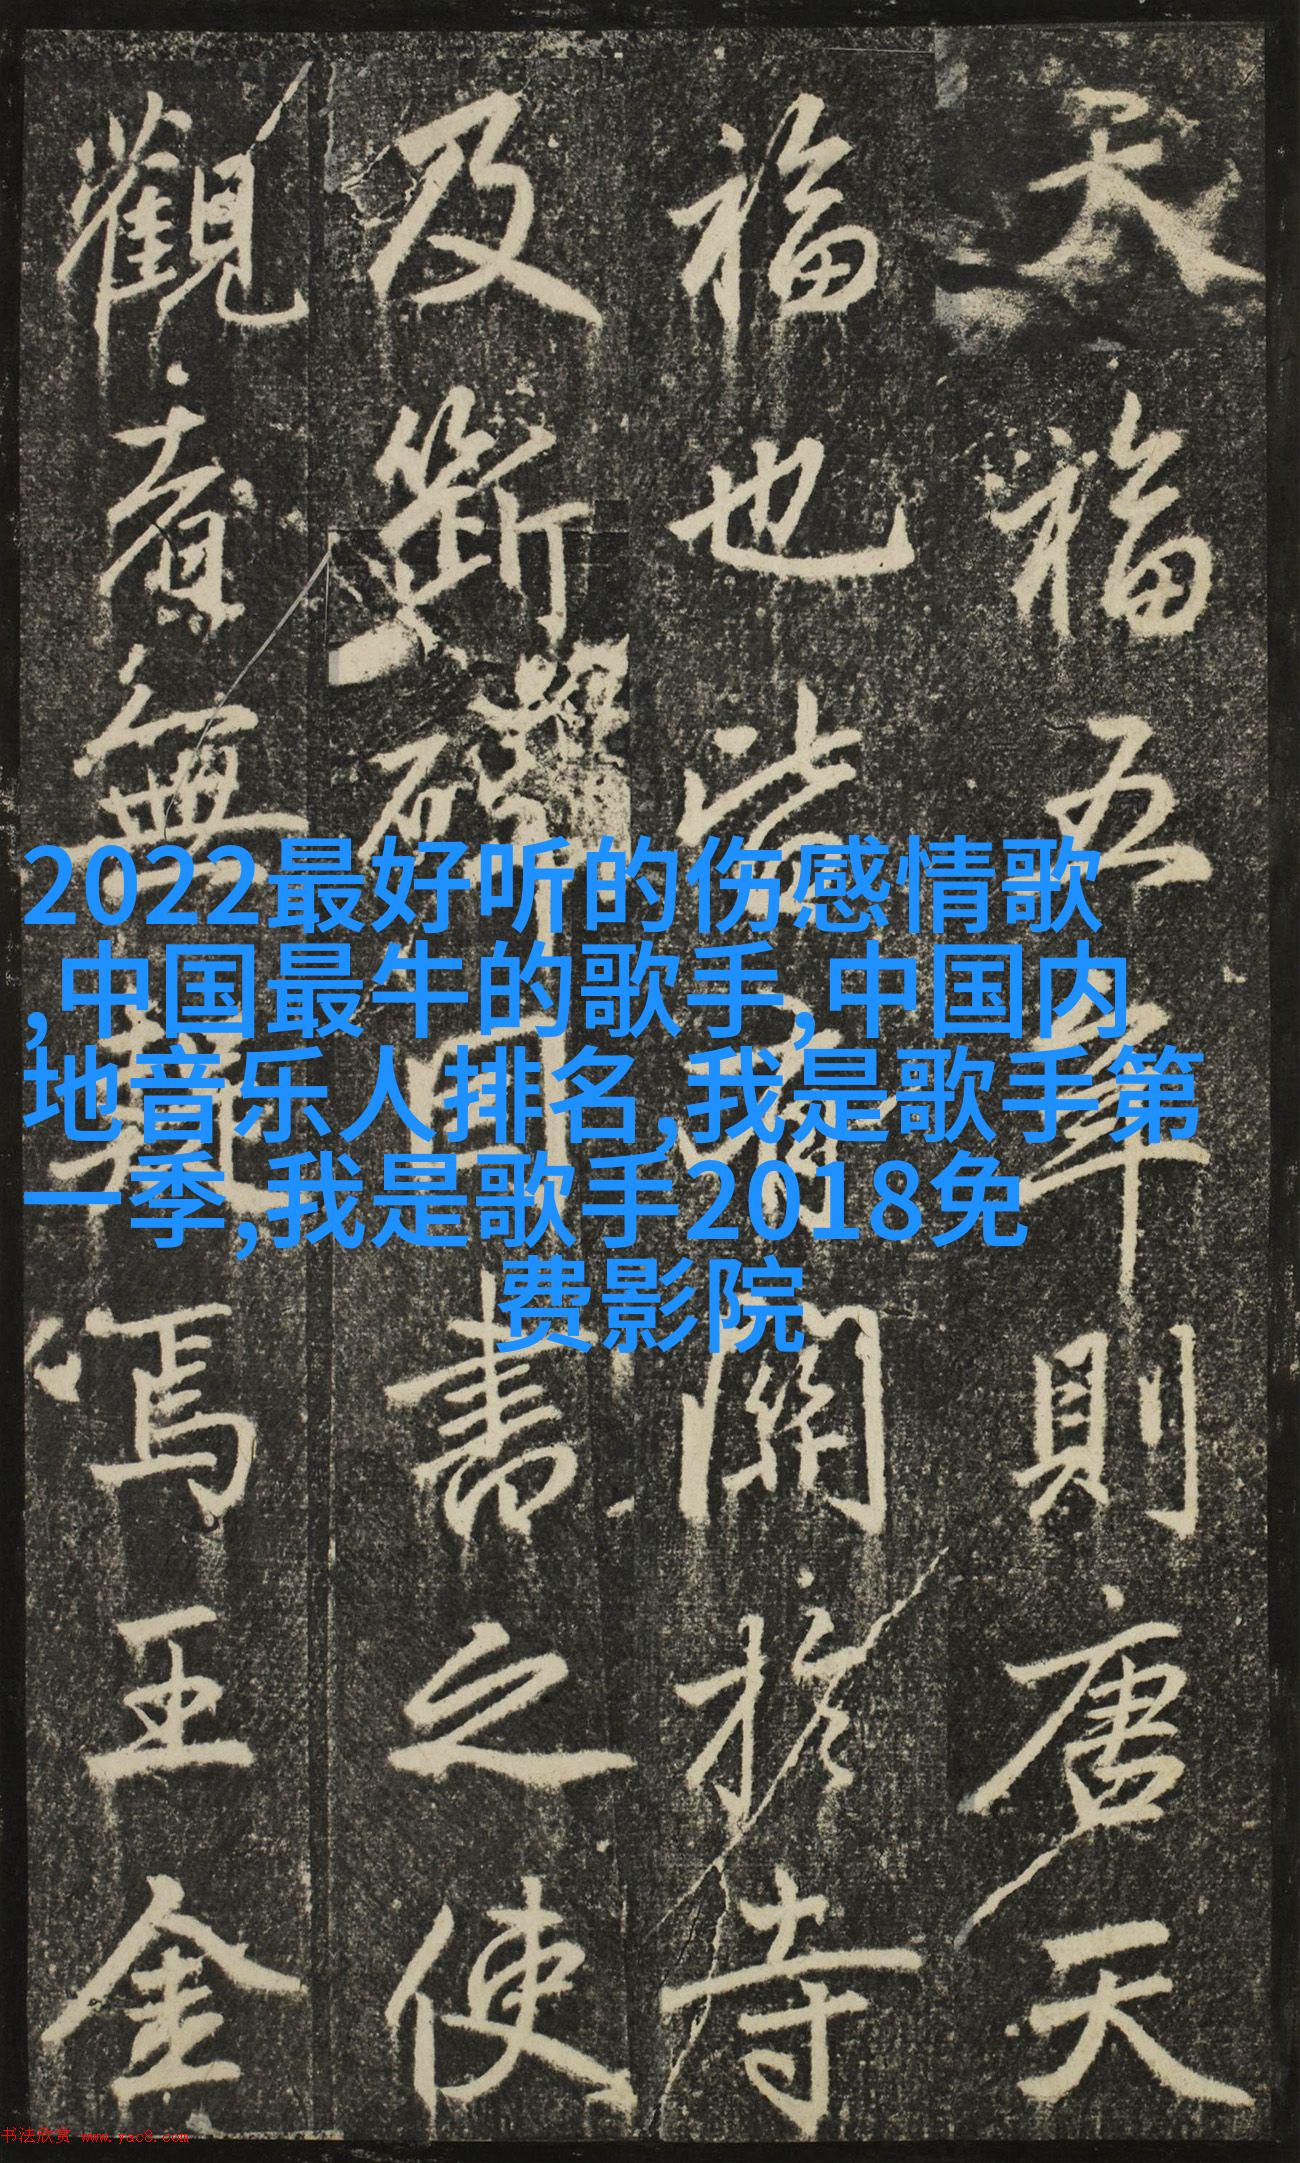 2022最好听的伤感情歌
,中国最牛的歌手,中国内
地音乐人排名,我是歌手第
一季,我是歌手2018免
费影院
天福五年則唐天
福也皆有關於寺
及斷碑書之使
觀無焉王金
书法欣赏 www.yac8.com